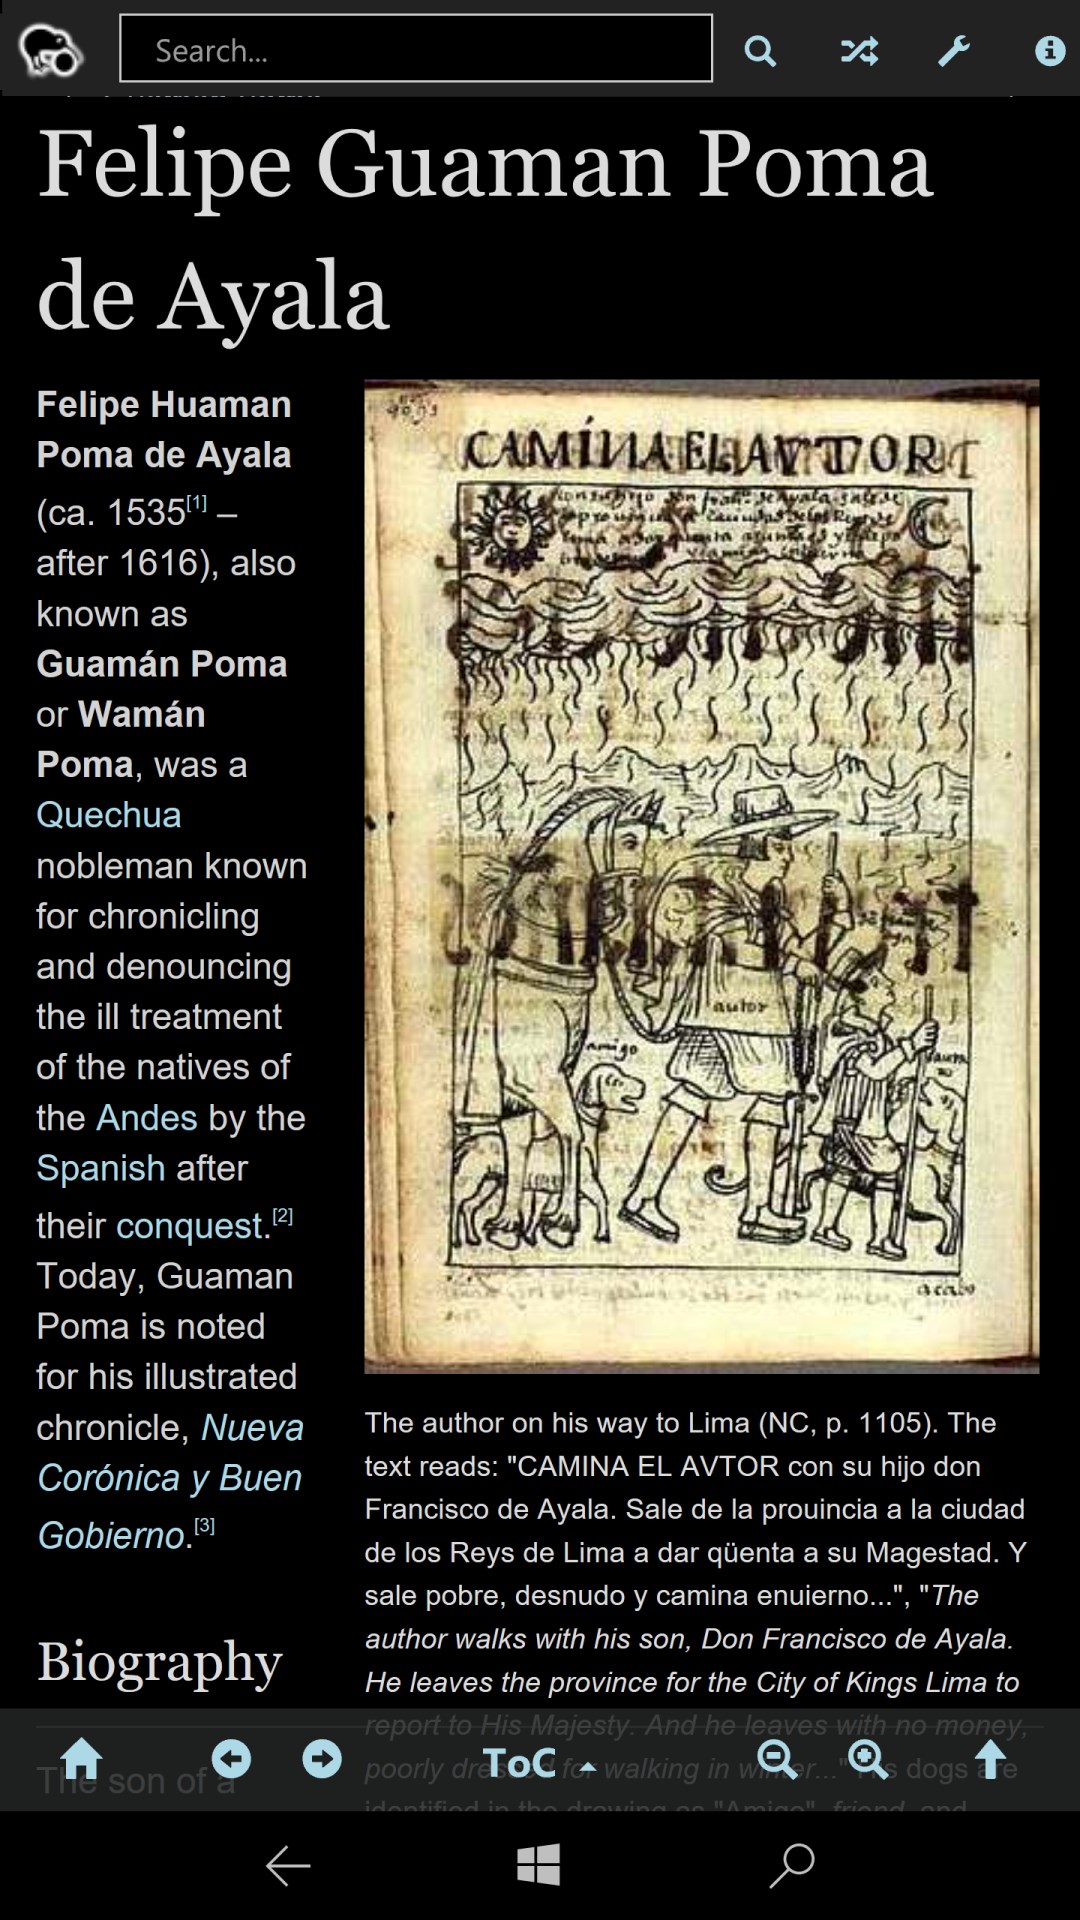 Search...
Felipe Guaman Poma
de Ayala
Felipe Huaman
Poma de Ayala
(ca. 1535[1] –
after 1616), also
known as
Guamán Poma
or Wamán
Poma, was a
Quechua
nobleman known
for chronicling
and denouncing
the ill treatment
of the natives of
the Andes by the
Spanish after
their conquest.[2]
Today, Guaman
Poma is noted
for his illustrated
chronicle, Nueva
Corónica y Buen
Gobierno.[3]
CAMÍNA EL AVTOR
autor
amigo
The author on his way to Lima (NC, p. 1105). The
text reads: "CAMINA EL AVTOR con su hijo don
Francisco de Ayala. Sale de la prouincia a la ciudad
de los Reys de Lima a dar qüenta a su Magestad. Y
sale pobre, desnudo y camina enuierno...", "The
author walks with his son, Don Francisco de Ayala.
He leaves the province for the City of Kings Lima to
report to His Majesty. And he leaves with no money,
poorly dressed for walking in winter..." His dogs are
identified in the drawing as "Amigo", friend, and
Biography
The son of a
ToC